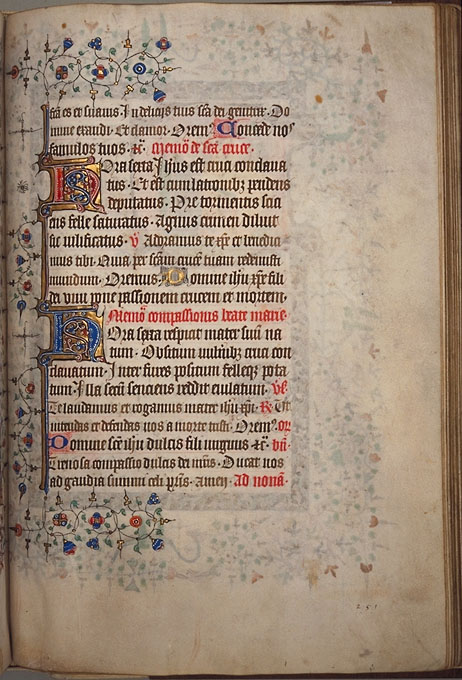 c̄ta es et suauis In delicijs tuis sc̄a dei genitrix · Do
mine exaudi · Et clamor · Orem᷒ Concede nos
famulos tuos · ⁊c̄ · Memo᷒ de sc̄a cruce ·
Hora sexta Ihus est cruci conclaua
tus · Et est cum latronib⁊ pendens
deputatus · Pre tormentis sici
ens felle saturatus · Agnus crimen diluit
sic uilificatus · ℣ Adoramus te xp̄e et benedici
mus tibi · Quia per sc̄am crucē tuam redemisti
mundum · Oremus · Domine ihū xp̄e fili
dei viui pone passionem crucem et mortem ·
Memo᷒ compassionis beate marie ·
Hora sexta respicit mater suū na
tum · Opsitum mulieribz cruci con
clauatum · Inter fures positum felleqz pota
tum · Illa secū senciens reddit eiulatum · ℣
Te laudamus et rogamus mater ihū xp̄i · ℟ Ut
intendas et defendas nos a morte tristi · Orem᷒ · or̄
Domine sc̄e ihū dulcis fili uirginis ⁊c̄ ·
dulcis dei mr̄is · Ducat nos
ad gaudia summi celi pr̄is · Amen · Ad nonā ·
251